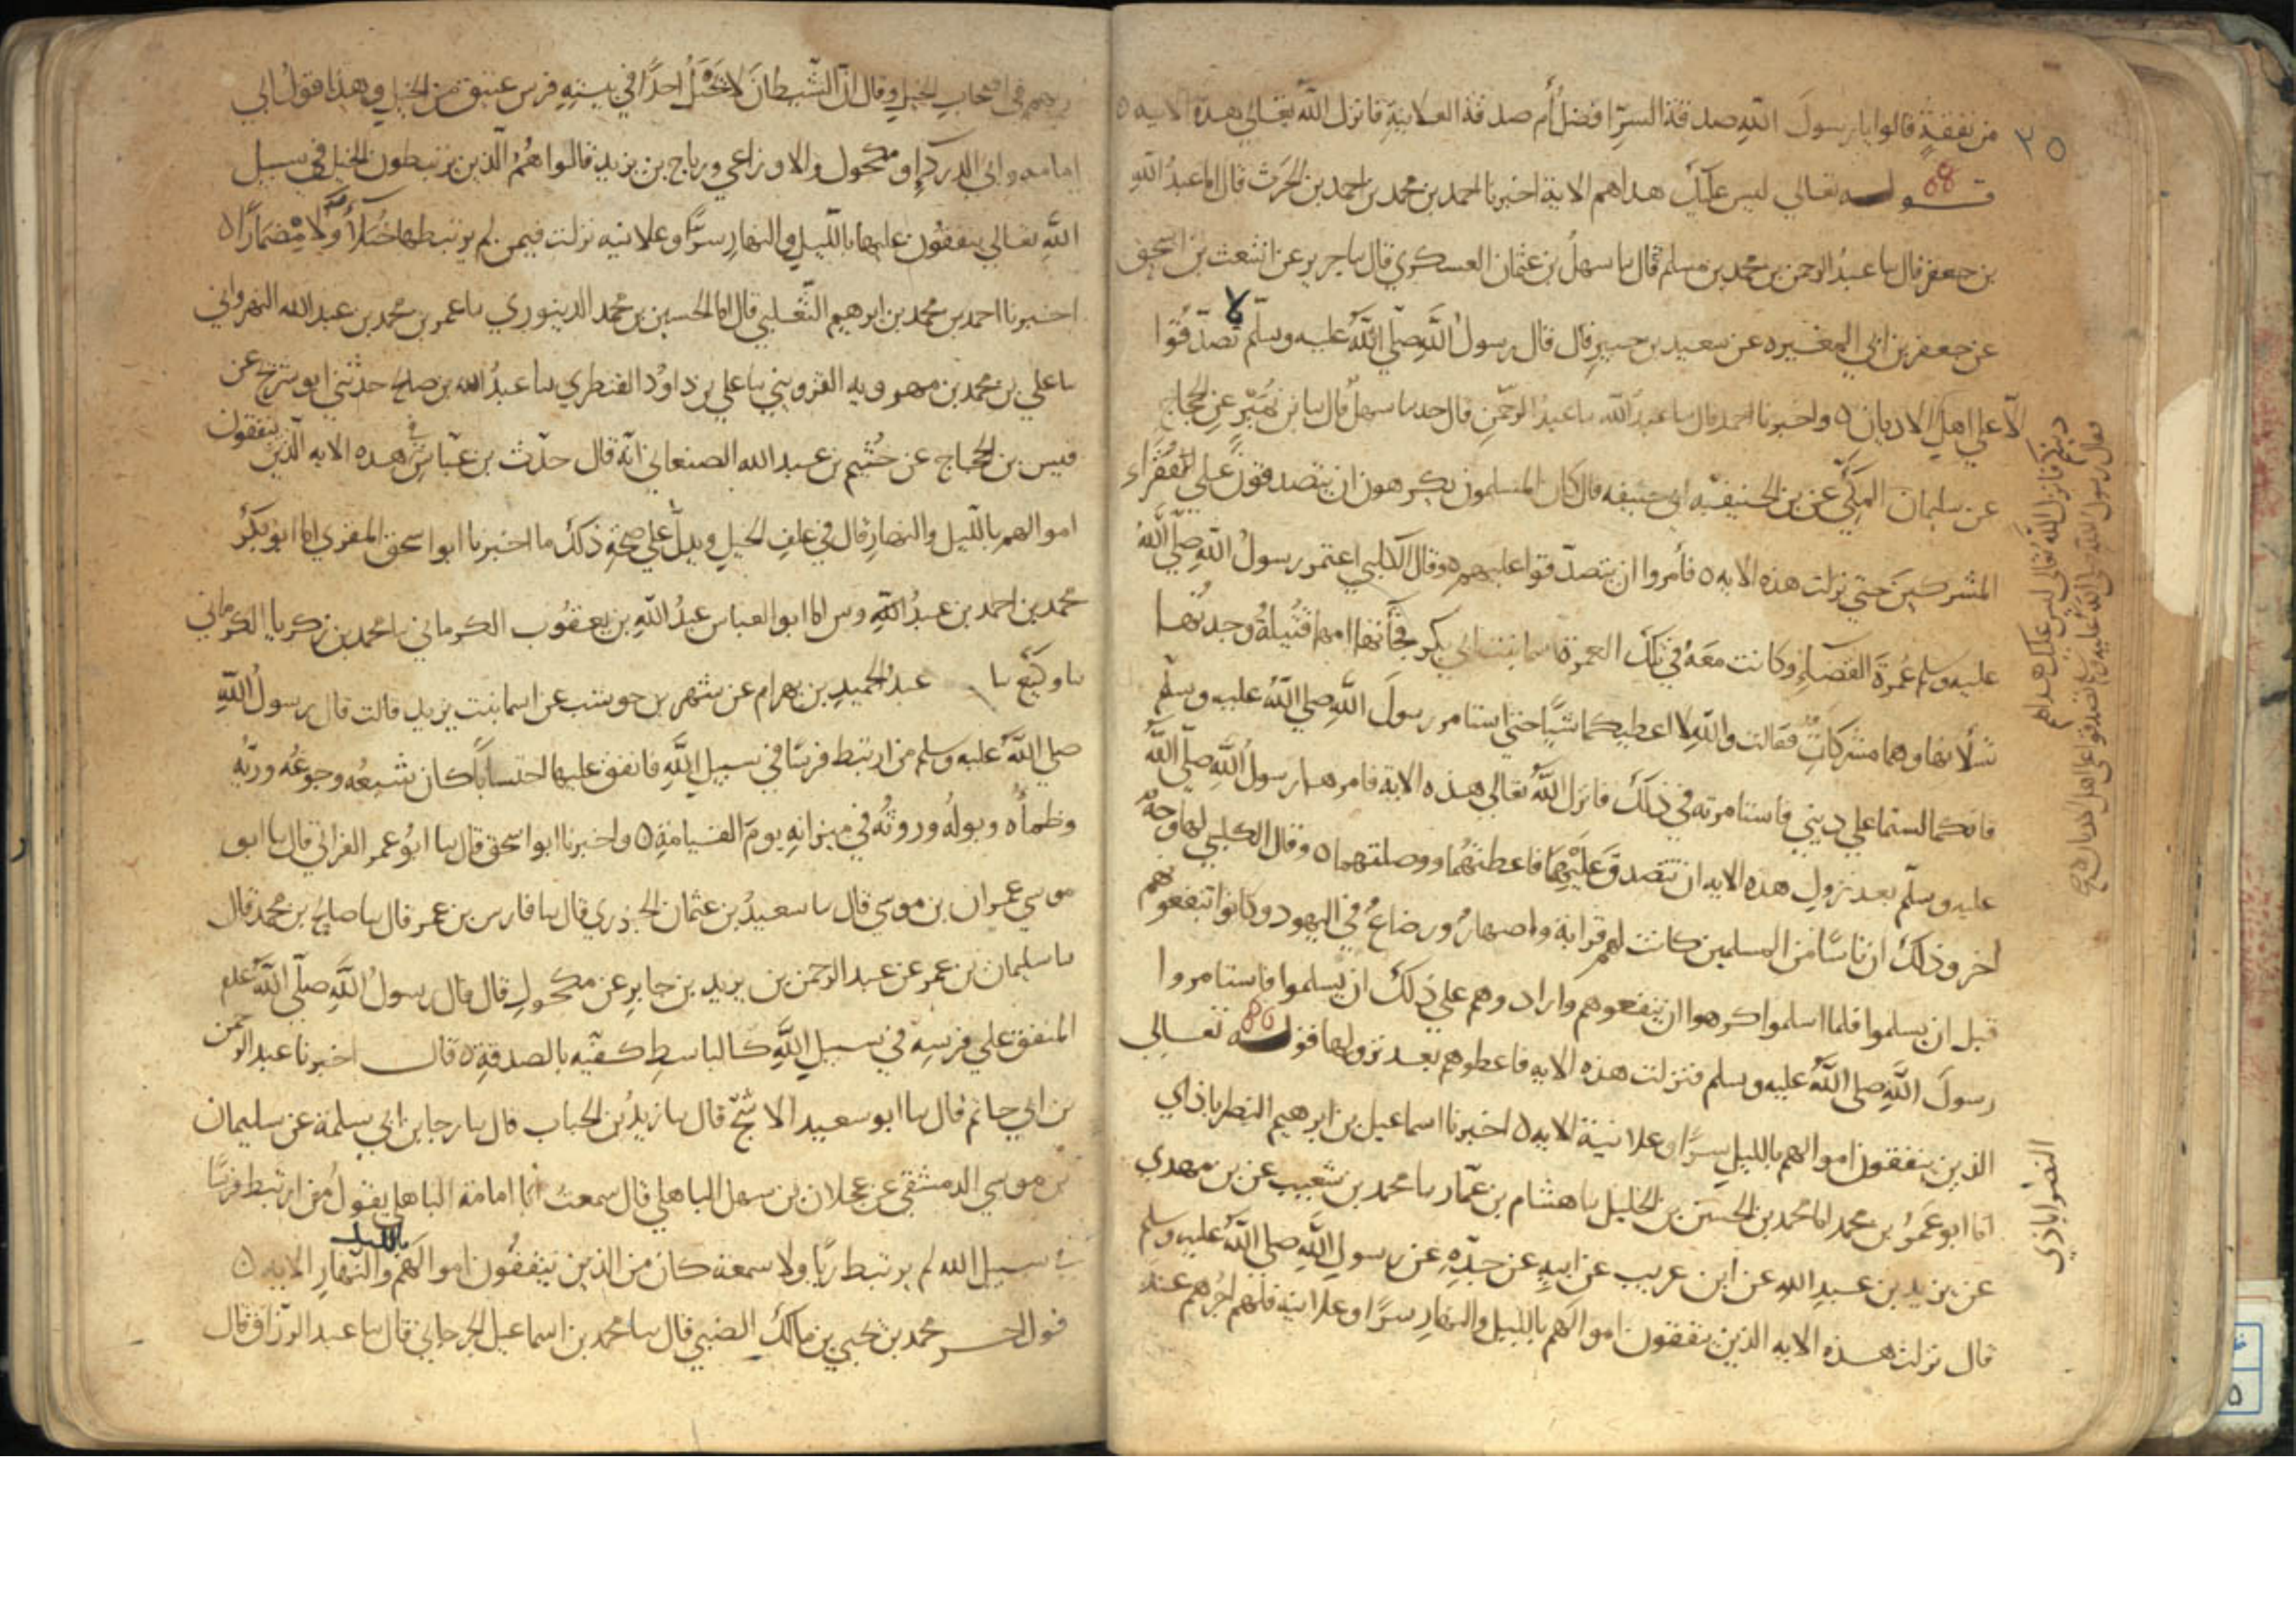 من نفقةٍ قالوا يا رسولَ اللّهِ صدقة السرّ افضلُ أم صدقة العلانيةِ فانزل اللّه تعالي هذه الايه ه
٣٥
قوله تعالي ليس عليك هداهم الاية اخبرنا احمد بن محمد بن احمد بن الحرث قال انا عبدُ اللّهِ
88
بن جعفر قال سا عبدُ الرحمن بن محمد بن مسلم قال سا سهلُ بن عثمان العسكري قال سا جرير عن اشعث بن اسحق
عن جعفر بن ابي المغيره عن سعيد بن جبيرٍ قال قال رسولُ اللّهِ صلّي اللّهُ عليه وسلّم لا تصدّقُوا
الّا علي اهلِ الاديان ه واخبرنا احمد قال سا عبدُ اللّه سا عبدُ الرحمن قال حدسا سهلٌ قال سا بن نُمَيْرٍ عن الحجاج
عن سليمان المكّيّ عن بن الحنيفيّه ابي حنيفه قال كان المسلمون يكرهون ان يتصدقون علي الفُقَراء
المشركين حتي نزلت هذه الايه ه فأمروا ان يتصدّقوا عليهم ه وقال الكلبي اعتمر رسولُ اللّهِ صلّي اللّهُ
عليه وسلم عُمرةَ القضاءِ وكانت معَهُ في تلك العمرة اسما بنت ابي بكر فجأتها امها قُتَيلةُ وجدتُها
تسلأنها وهما مشركات فقالت واللّهِ لا اعطيكما شيًا حتي استامر رسولَ اللّهِ صلي اللّهُ عليه وسلّم
فانكما لستما علي ديني فاستامرته في ذلك فانزل اللّهُ تعالي هذه الاية فامرها رسولُ اللّهِ صلّي اللّهُ
عليه وسلّم بعد نزولِ هذه الايه ان تتصدقَ عَلَيْهِمَا فاعطتْهُما ووصلتهما ه وقال الكلبي لها وجهٌ
اخر وذلك ان ناسًا من المسلمين كانت لهم قرابة واصهارٌ ورضاعٌ في اليهود وكانوا ينفعونهم
قبل ان يسلموا فلما اسلموا كرهوا ان ينفعوهم واراد وهم علي ذلك ان يُسلموا فاستامروا
رسولَ اللّهِ صلي اللّهُ عليه وسلم فنزلت هذه الايه فاعطوهم بعد نزولها قوله تعالي
86
الذين ينفقون اموالهم بالليل سرًّا وعلانيةً الايه ه اخبرنا اسماعيل بن ابرهيم النصراباذي
انا ابو عَمرُ بن محمد انا محمد بن الحسن بن الخليل سا هشام بن عمّار سا محمد بن شعيب عن بن مهدي
عن يزيد بن عبدِ اللّهِ عن ابن عريب عن ابيهِ عن جدّهِ عن رسولِ اللّهِ صلي اللّهُ عليه وسلم
قال نزلت هذه الايه الذين ينفقون اموالهم بالليل والنهارِ سرًّا وعلانيه فلهم اجرهم عند
دينكم فانزل اللّه تعالي ليس عليك هداهم
فقال رسول اللّه صلي اللّه عليه وسلم تصدقوا علي اهل الاديان صح
النصراباذي
ربهم في اصحابِ الخيلِ وقال انّ الشّيطانَ لا يَخْبُلُ احدًا في بيتهِ فرس عتيق من الخيل وهذا قولُ ابي
امامه وابي الدرداءِ ومكحولٍ والاوزاعي ورباح بن يزيد قالوا هُمُ الّذين يرتبطون الخيل في سبيل
اللّهِ تعالي ينفقُون عليها بالّليلِ والنهارِ سرًّا وعلانيه نزلت فيمن لم يرتبطها خُيَلاَءً وَلَا مِضمَارًا ه
اخبرنا احمد بن محمد بن ابرهيم الثّعلبي قال انا الحسين بن محمد الدينوري سا عمر بن محمد بن عبد اللّه النهرواني
سا علي بن محمد بن مهرويه القزويني سا علي بن داوُد القنطري سا عبدُ اللّه بن صلح حدثني ابو شريح عن
قيس بن الحجاج عن خُثَيم بن عبد اللّه الصنعاني انّه قال حدّث بن عبّاس في هذه الايه الّذين ينفقون
اموالهم بالّليل والنهارِ قال في علفِ الخيلِ ويدلّ علي صحّةِ ذلك ما اخبرنا ابو اسحق المقري انا ابو بكرٍ
محمد بن احمد بن عبدُ اللّهِ وس انا ابو العباس عبدُ اللّهِ بن يعقُوب الكرماني سا محمد بن زكريا الكرماني
سا وكيع سا عبدُ الحميدِ بن بهرام عن شهر بن حوشب عن اسما بنت يزيد قالت قال رسولُ اللّهِ
صلي اللّهُ عليه وسلم من ارتبط فرسًا في سبيلِ اللّهِ فانفق عليها احتسابًا كان شبعُه وجوعُه وريّهُ
وظمأُه وبولُهُ وروثُهُ في ميزانهِ يومَ القيامةِ ه واخبرنا ابو اسحق قال سا ابُو عمر الفراتي قال سا ابو
موسي عمران بن موسي قال سا سعيدُ بن عثمان الجزري قال سا فارس بن عمر قال سا صالح بن محمد قال
سا سليمان بن عمر عن عبد الرحمن بن يزيد بن جابر عن مكحولٍ قال قال رسولُ اللّهِ صلّي اللّهُ علم
المنفق علي فرسِهِ في سبيلِ اللّهِ كالباسطِ كفيّه بالصدقةِ ه قال اخبرنا عبد الرحمن
بن ابي حاتم قال سا ابو سعيد الاشجّ قال سا زيدُ بن الحباب قال سا رجا بن ابي سلمة عن سليمان
بن موسي الدمشقي عن عجلان بن سهل الباهلي قال سمعتُ ابا امامة الباهلي يقولُ من ارتبط فرسًا
في سبيلِ اللّه لم يرتبط ريًّا ولا سمعة كان من الذين ينفقُون اموالَهُم بالليل والنهارِ الايه ه
قول محمد بن يحيي بن مالك الضبي قال سا محمد بن اسماعيل الجرجاني قال سا عبد الرّزاق قال